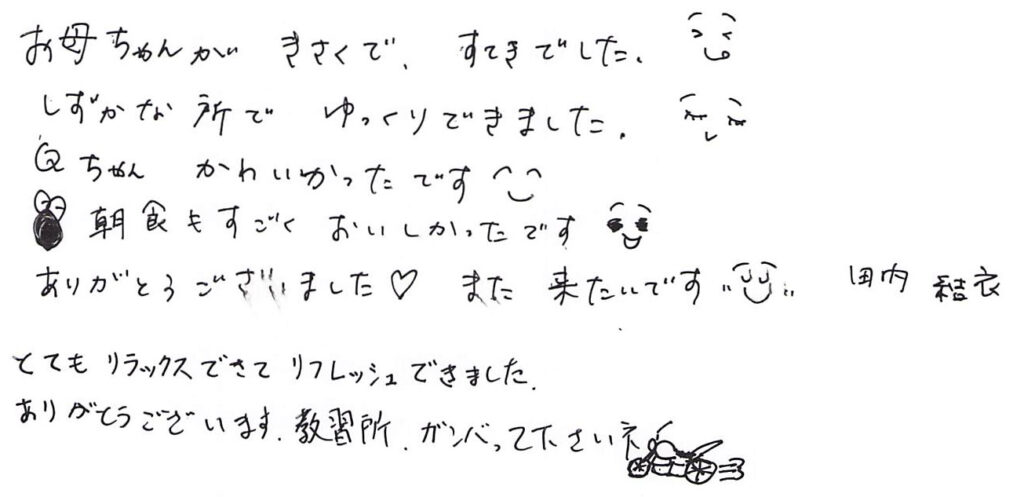 お母ちゃんが きさくで、 すてきでした。
しずかな所で ゆっくりできました。
Qちゃん かわいかったです
朝食もすごく おいしかったです
ありがとうございました♡ また 来たいです 田内 結衣
とてもリラックスできて リフレッシュできました。
ありがとうございます。教習所、ガンバって下さいネ